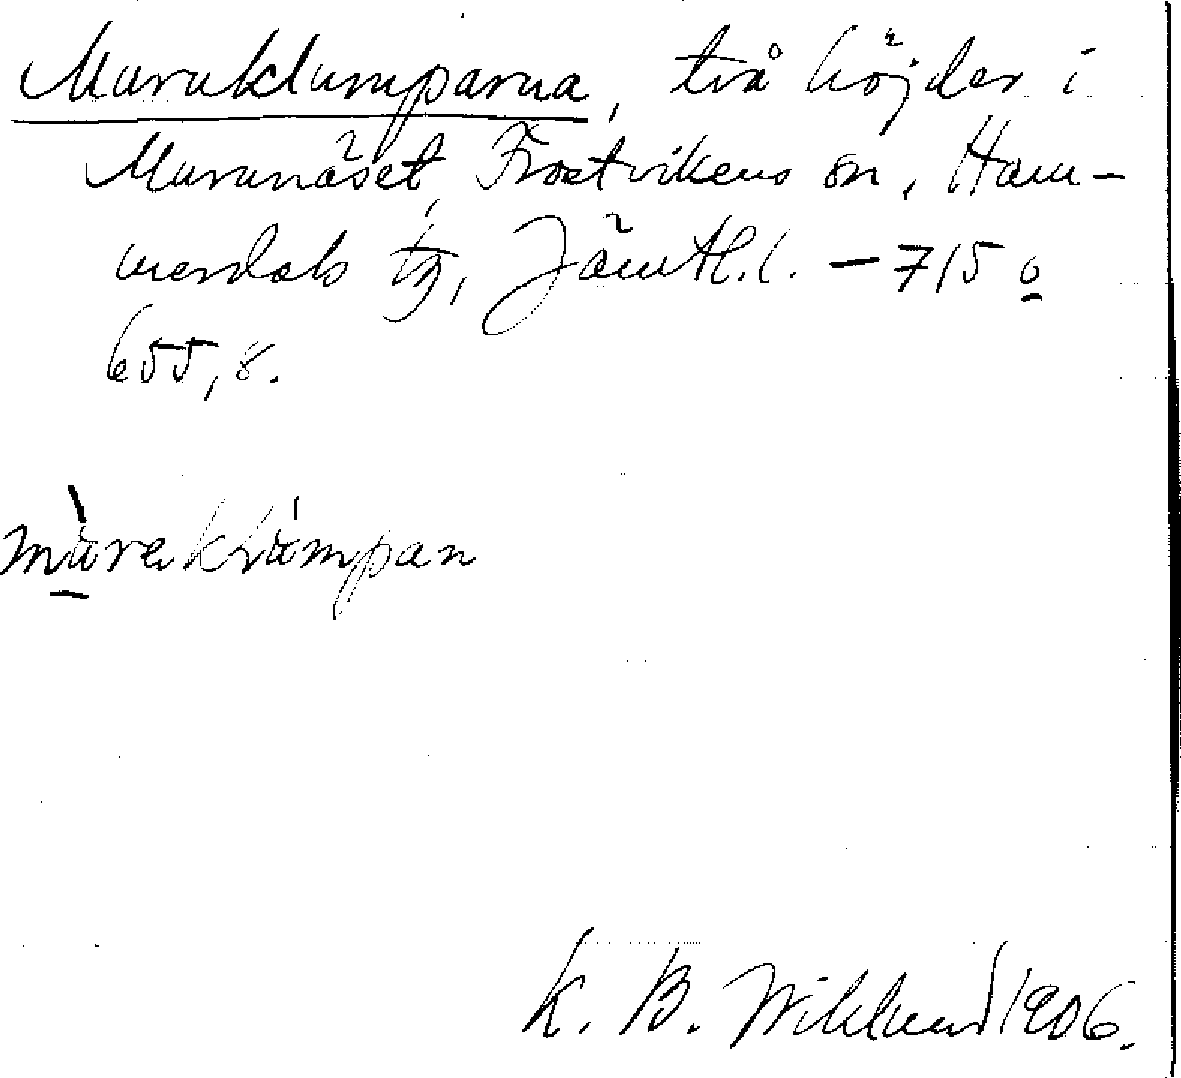 Muruklumparna, två höjder i
Murunäset, Frostvikens sn, Ham-
merdals tg, Jämtl. l. — 715 o
655,8.
K. B. Wiklund 1906.